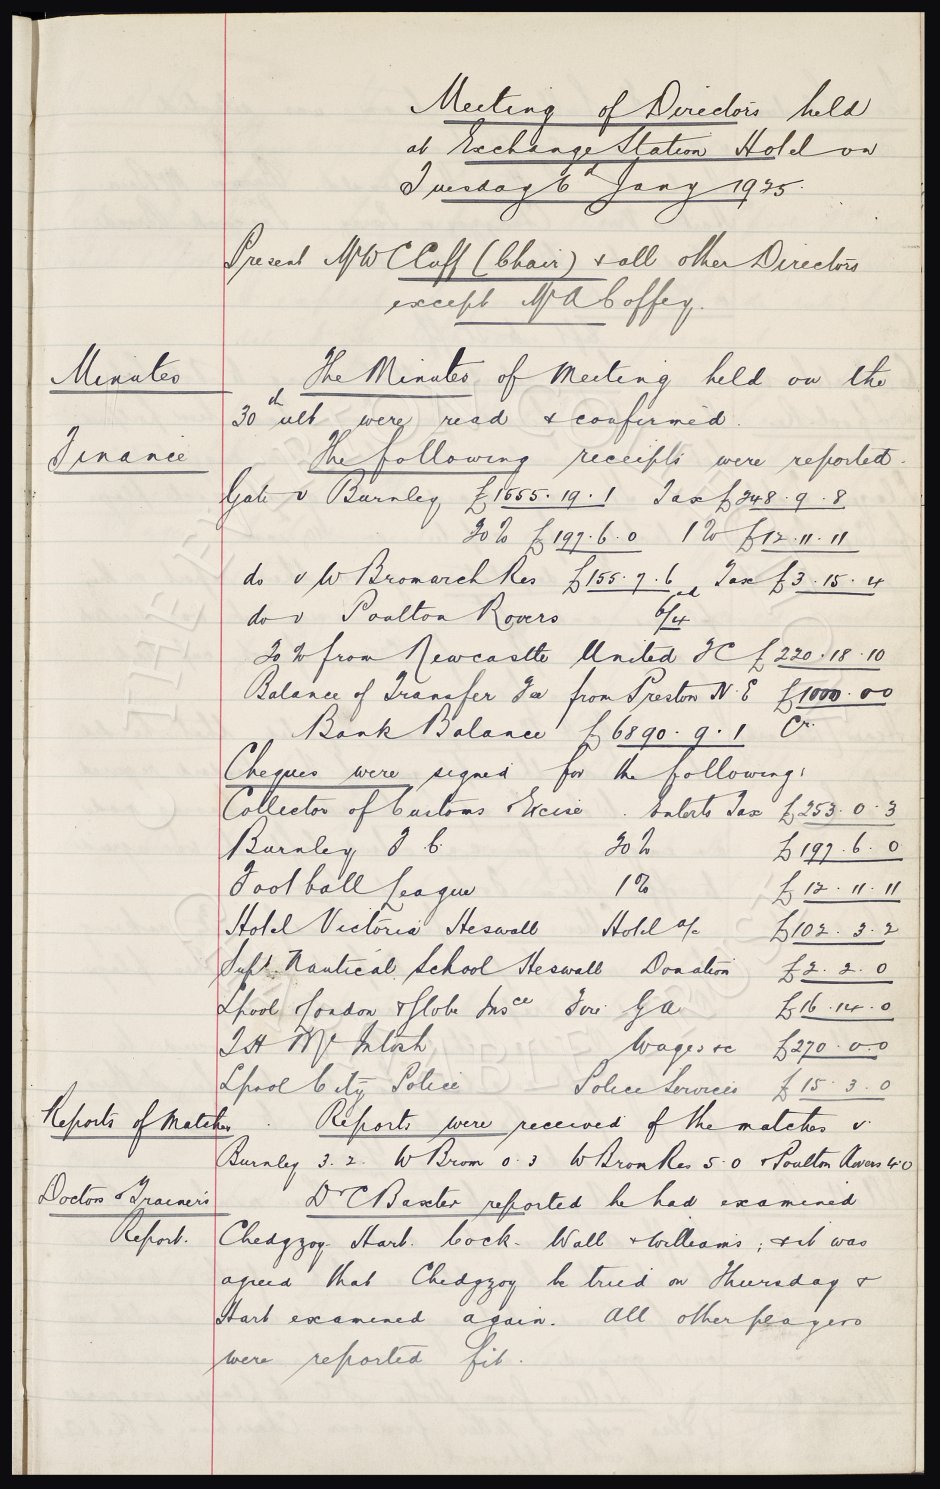 Meeting of Directors held
at Exchange Station Hotel on
Tuesday 6th Jany 1925.
Present Mr W C Cuff (Chair) & all other Directors
except Mr A Coffey.
Minutes The Minutes of Meeting held on the
30th ult were read & confirmed.
Finance The following receipts were reported.
Gate v Burnley £1555. 19. 1 Tax £248. 9. 8
20% £197. 6. 0 1% £12. 11. 11
do v W Bromwich Res £155. 7. 6 Tax £3. 15. 4
do v Poulton Rovers 6/4d
20% from Newcastle United FC £220. 18. 10
Balance of Transfer Fee from Preston N. E £1000. 0 0
Bank Balance £6890. 9. 1 Cr.
Cheques were signed for the following:
Collector of Customs & Excise. Enterts Tax £253. 0. 3
Burnley F. C. 20% £197. 6. 0
Football League 1% £12. 11. 11
Hotel Victoria Heswall Hotel a/c £102. 3. 2
Supt. Nautical School Heswall Donation £2. 2. 0
Lpool London & Globe Insce Fire G A £16. 14. 0
T H McIntosh Wages &c £270. 0. 0
Lpool City Police Police Services £15. 3. 0
Reports of Matches Reports were received of the matches v.
Burnley 3. 2. W Brom 0. 3 W Brom Res 5. 0 & Poulton Rovers 4. 0
Doctors & Trainer's Dr C Baxter reported he had examined
Report. Chedgzoy. Hart. Cock. Wall & Williams; & it was
agreed that Chedgzoy be tried on Thursday &
Hart examined again. All other players
were reported fit.